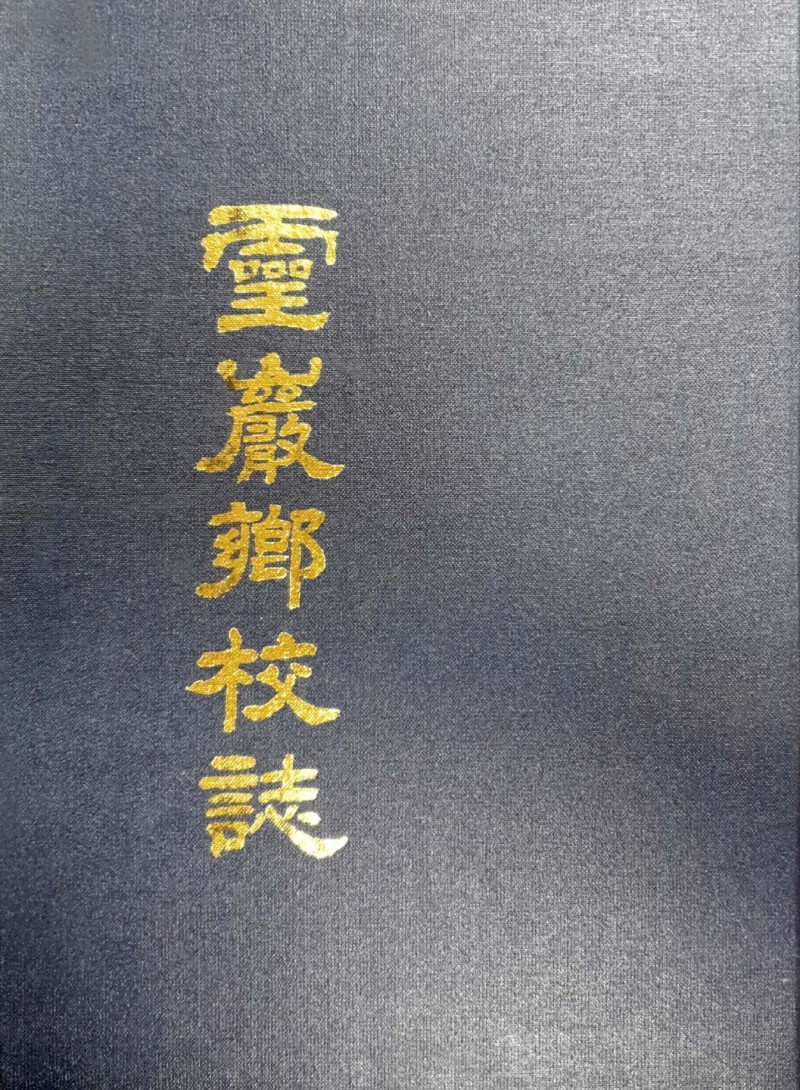 靈巖鄕校誌